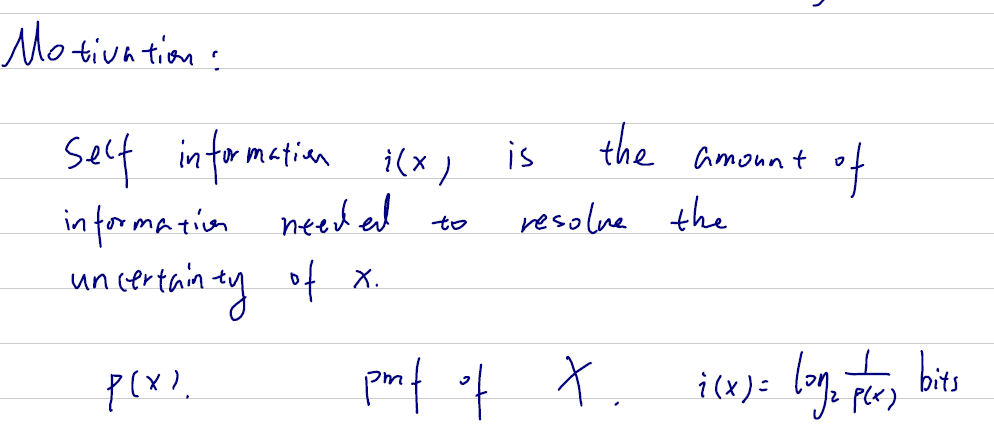 Motivation:
Self information i(x) is the amount of
information needed to resolve the
uncertainty of x.
p(x). pmf of X. i(x) = log₂ 1/p(x) bits